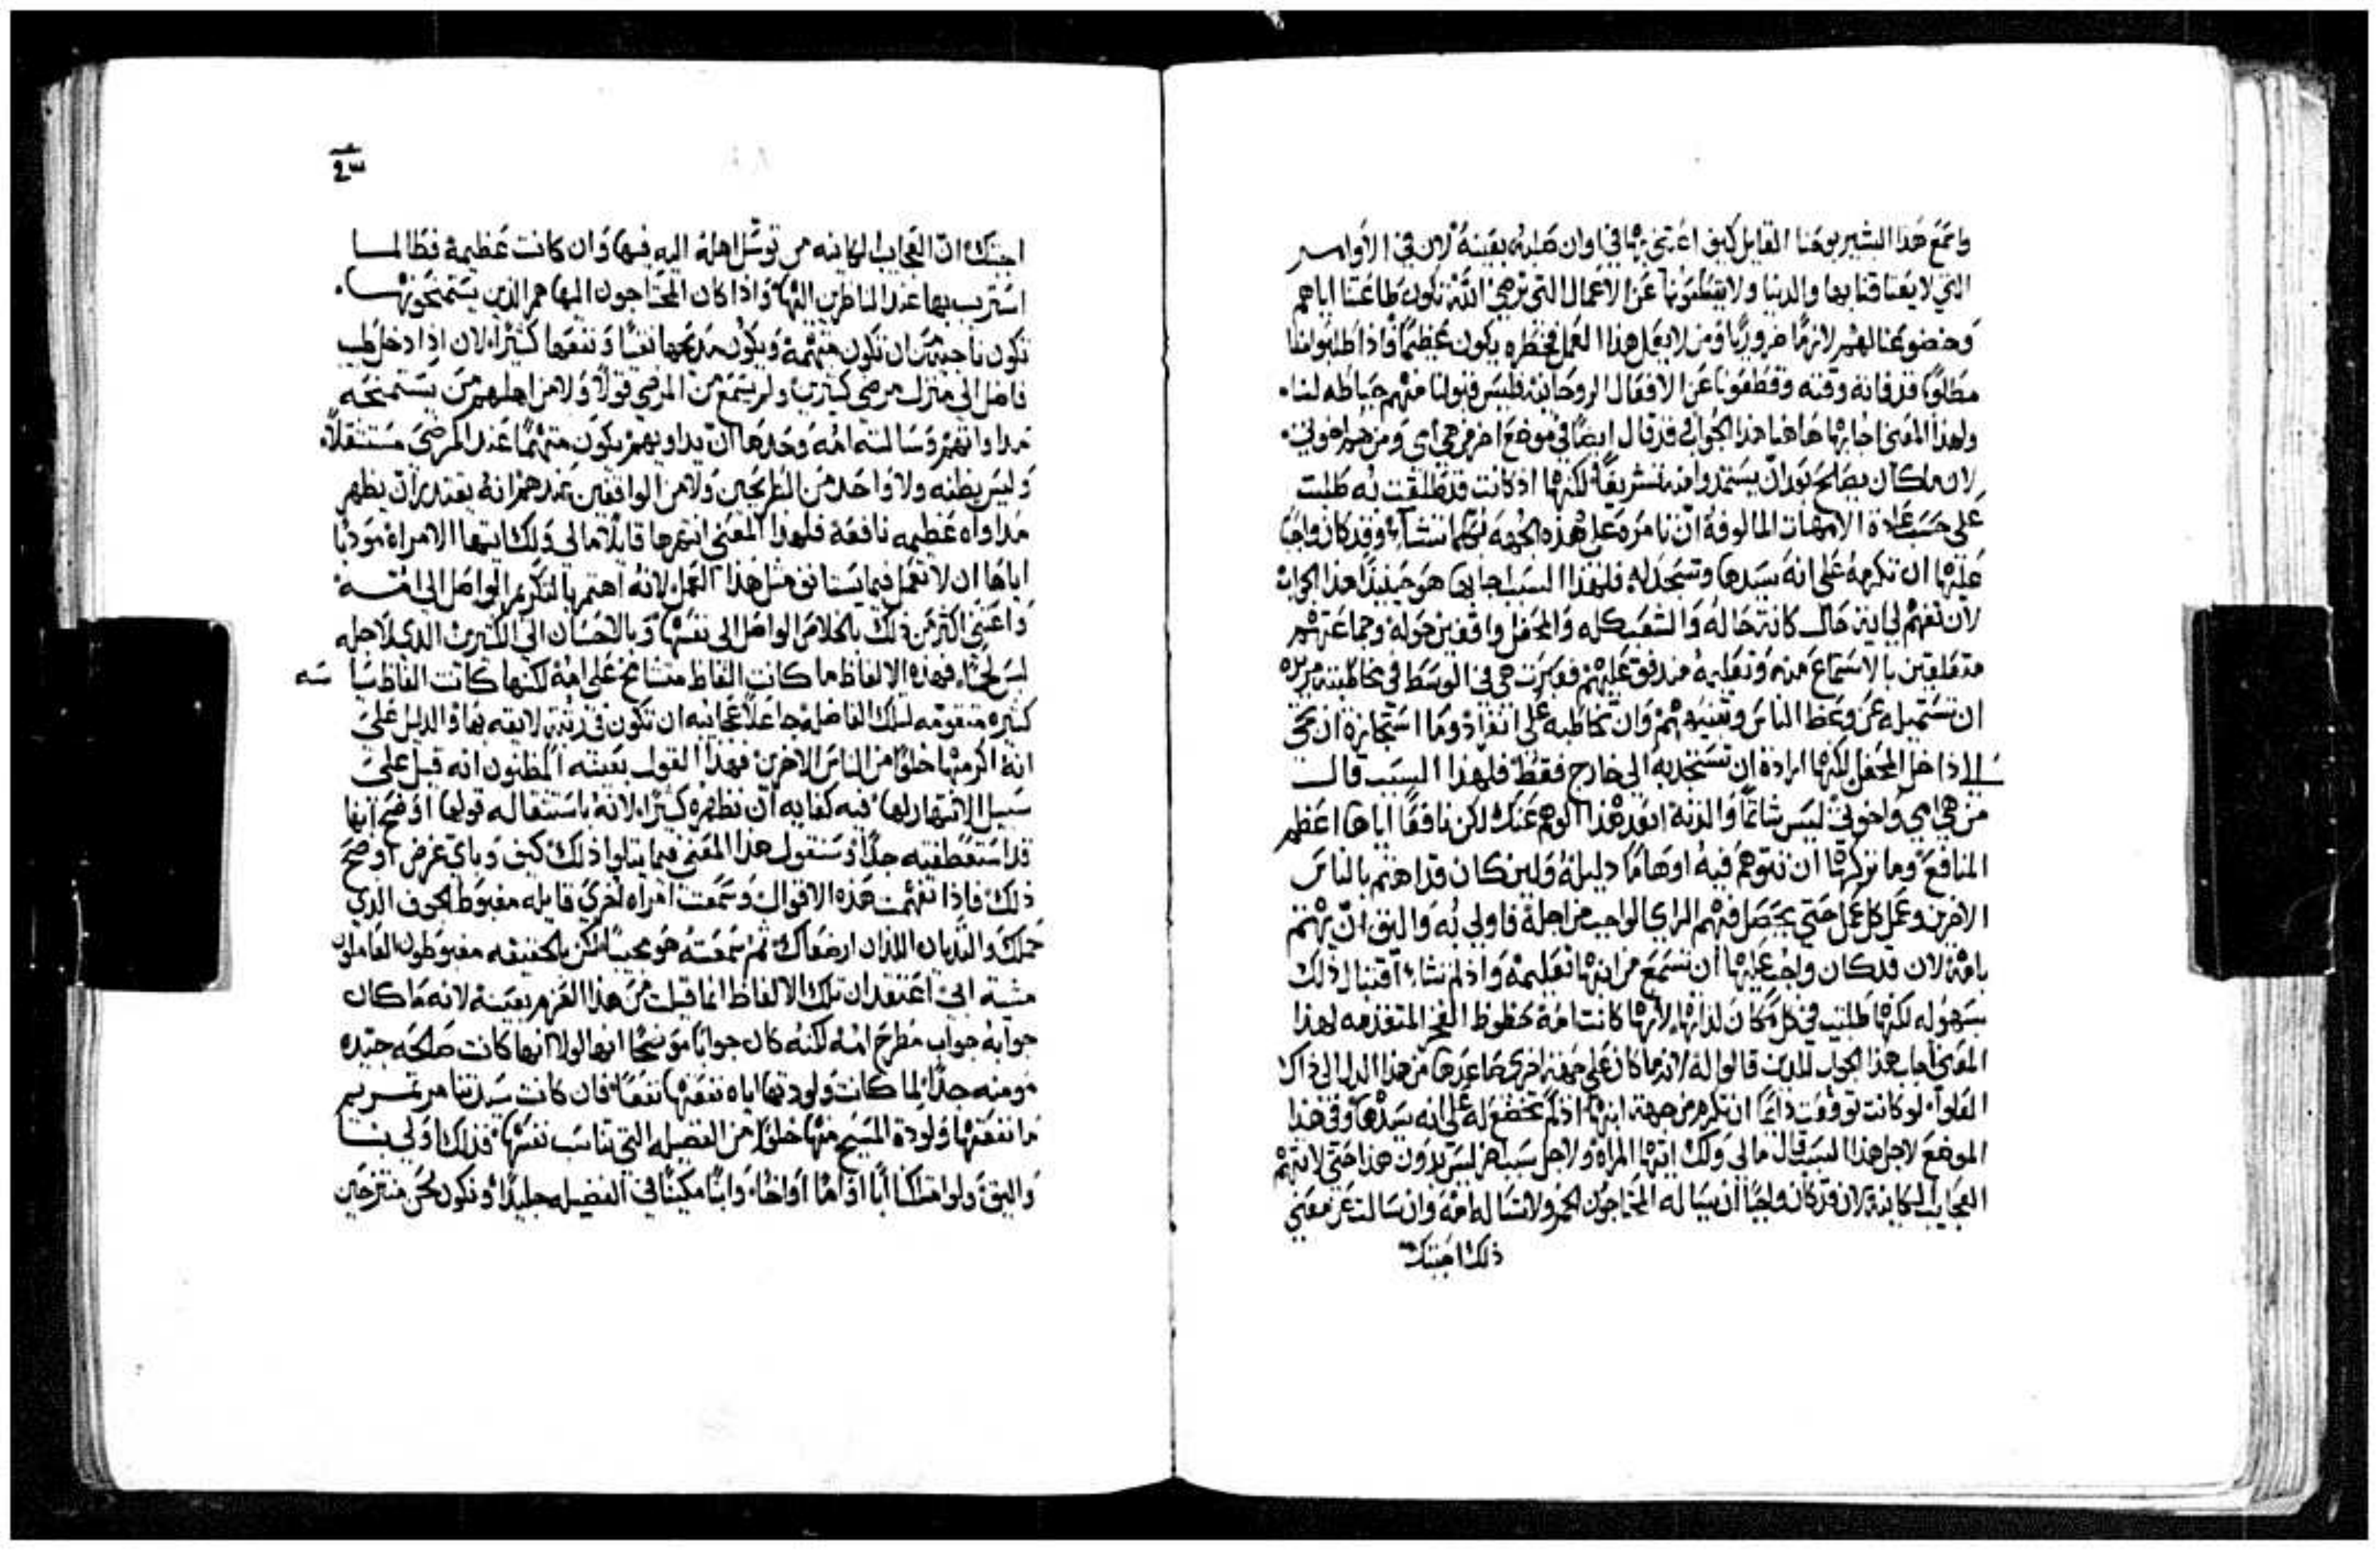 واسمع هذا البشير يوحنا القايل كيف اعتني بها في اوان صلبه بعينه لان في الاوامر
التي لا يعتاقنا بها والدينا ولا يقطعونا عن الاعمال التي ترضي الله تكون طاعتنا اياهم
وخضوعنا لهم لازما ضروريا ومن لا يعمل هذا العمل فخطره يكون عظيما واذا طلبوا منا
مطلوبا قد فاته وقته وقطعونا عن الافعال الروحانيه فليس قبولنا منهم حياطه لنا
ولهذا المعنى اجابها هاهنا هذا الجواب قد قال ايضا في موضع اخر من هي امي ومن هم اخوتي
لان ما كان يصلح بعد ان يستمدوا منه تشريفا لكنها اذ كانت قد طلقت به طلبت
على حسب عادة الامهات المالوفة ان تامره على هذه الجهه بكلما تشاء وقد كان واجبا
عليها ان تكرمه على انه سيدها وتسجد له فلهذا السبب اجابها هو حينيذ هذا الجواب
لان تفهم لي اية حال كانت حاله والشعب كله والمحفل واقفين حوله وجماعتهم
متعلقين بالاستماع منه وتعليمه متدفق عليهم فعبرت هي في الوسط في مخاطبته مريده
ان تستميله عن وعظ الناس وتنبيههم وان تخاطبه على انفراد وما استجازة ان تجي
الى داخل المحفل لكنها ارادة ان تستجذبه الى خارج فقط فلهذا السبب قال
من هي امي واخوتي ليس شاتما والدته ابعد هذا الوهم عنك لكن نافعا اياها اعظم
المنافع وما تركها ان تتوهم فيه اوهاما دليله ولين كان قد اهتم بالناس
الاخرين وعمل كل عمل حتى يحصل فيهم الراي الواجب من اجله فاولى به واليق ان يهتم
بامه لان قد كان واجب عليها ان تسمع من ابنها تعليمة واذ لم تشاء اقتبال ذلك
بسهوله لكنها طلبت في كل مكان لذاتها لانها كانت امه حظوظ الفخر المتقدمه لهذا
المعنى اجاب هذا الجواب للذين قالوا له لانه ما كان على جهة اخرى صاعدها من هذا الدل الى ذاك
العلو لو كانت توقعت دايما ان تكرم من جهة ابنها اذ لم تخضع له على انه سيدها وفي هذا
الموضع لاجل هذا السبب قال مالي ولك ايتها المراه ولاجل سبب اخر ليس بدون هذا حتى لا تتهم
العجايب الكاينة لان قد كان واجبا ان يساله المحتاجون الخمر ولا تساله امه وان سالت عن معنى
ذلك اجبتك
٤٣
اجبتك ان العجايب الكاينه من توسل اهله اليه فيها وان كانت عظيمة فطالما
استريب بها عند الناظرين اليها واذا كان المحتاجون اليها هم الذين يستمنحونها
تكون ناجية من ان تكون متهمة ويكون مديحها نقيا ونفعها كثيرا لان اذا دخل طبيب
فاضل الى منزل مرضى كثيرين ولم يسمع من المرضى قولا ولا من اهلهم من يستمنحه
مداواتهم وسالته امه وحدها ان يداويهم يكون متهما عند المرضى مستثقلا
وليس يظنه ولا واحد من المطروحين ولا من الواقفين عندهم انه يقتدر ان يظهر
مداواه عظيمه نافعة فلهذا المعنى انتهرها قايلا مالي ولك ايتها الامراة مودبا
اياها ان لا تعمل فيما يستانف مثل هذا العمل لانه اهتم بالتكريم الواصل الى امه
واعتني اكثر من ذلك بالخلاص الواصل الى نفسها وبالاحسان الى الكثيرين الذي لاجله
لبس لحما فهذه الالفاظ ما كانت الفاظ متشامخ على امه لكنها كانت الفاظ سيا سه
كثيره مقومه لتلك الفاضلة جاعلا عجايبه ان تكون في رتبة لايقه بها والدليل على
انه اكرمها خلوا من الناس الاخرين فهذا القول بعينه المظنون انه قيل على
سبيل الانتهار لها فيه كفايه ان تظهره كثيرا لانه باستثقاله قولها اوضح انها
قد استعطفته جدا وسنقول هذا المعنى فيما يتلوا ذلك كيف وباي غرض اوضح
ذلك فاذا تفهمت هذه الاقوال وسمعت امراه اخرى قايله مغبوط الجوف الذي
حملك والثديان اللذان ارضعاك ثم سمعته هو مجيبا لكن بالحقيقه مغبوطون العاملون
مشية ابي اعتقد ان تلك الالفاظ انما قيلت من هذا العزم بعينه لانه ما كان
جوابه جواب مطرح امه لكنه كان جوابا موضحا انها لولا انها كانت صالحه جيده
مومنه جدا لما كانت ولودتها اياه نفعتها نفعا فان كانت سيدتنا مرتمريم
ما نفعتها ولودة المسيح منها خلوا من الفضيله التي تناسب نفسها فذلك اولى بنا
واليق ولو امتلكنا ابا او اما او اخا وابنا مكينا في الفضيله جليلا ونكون نحن منتزحين